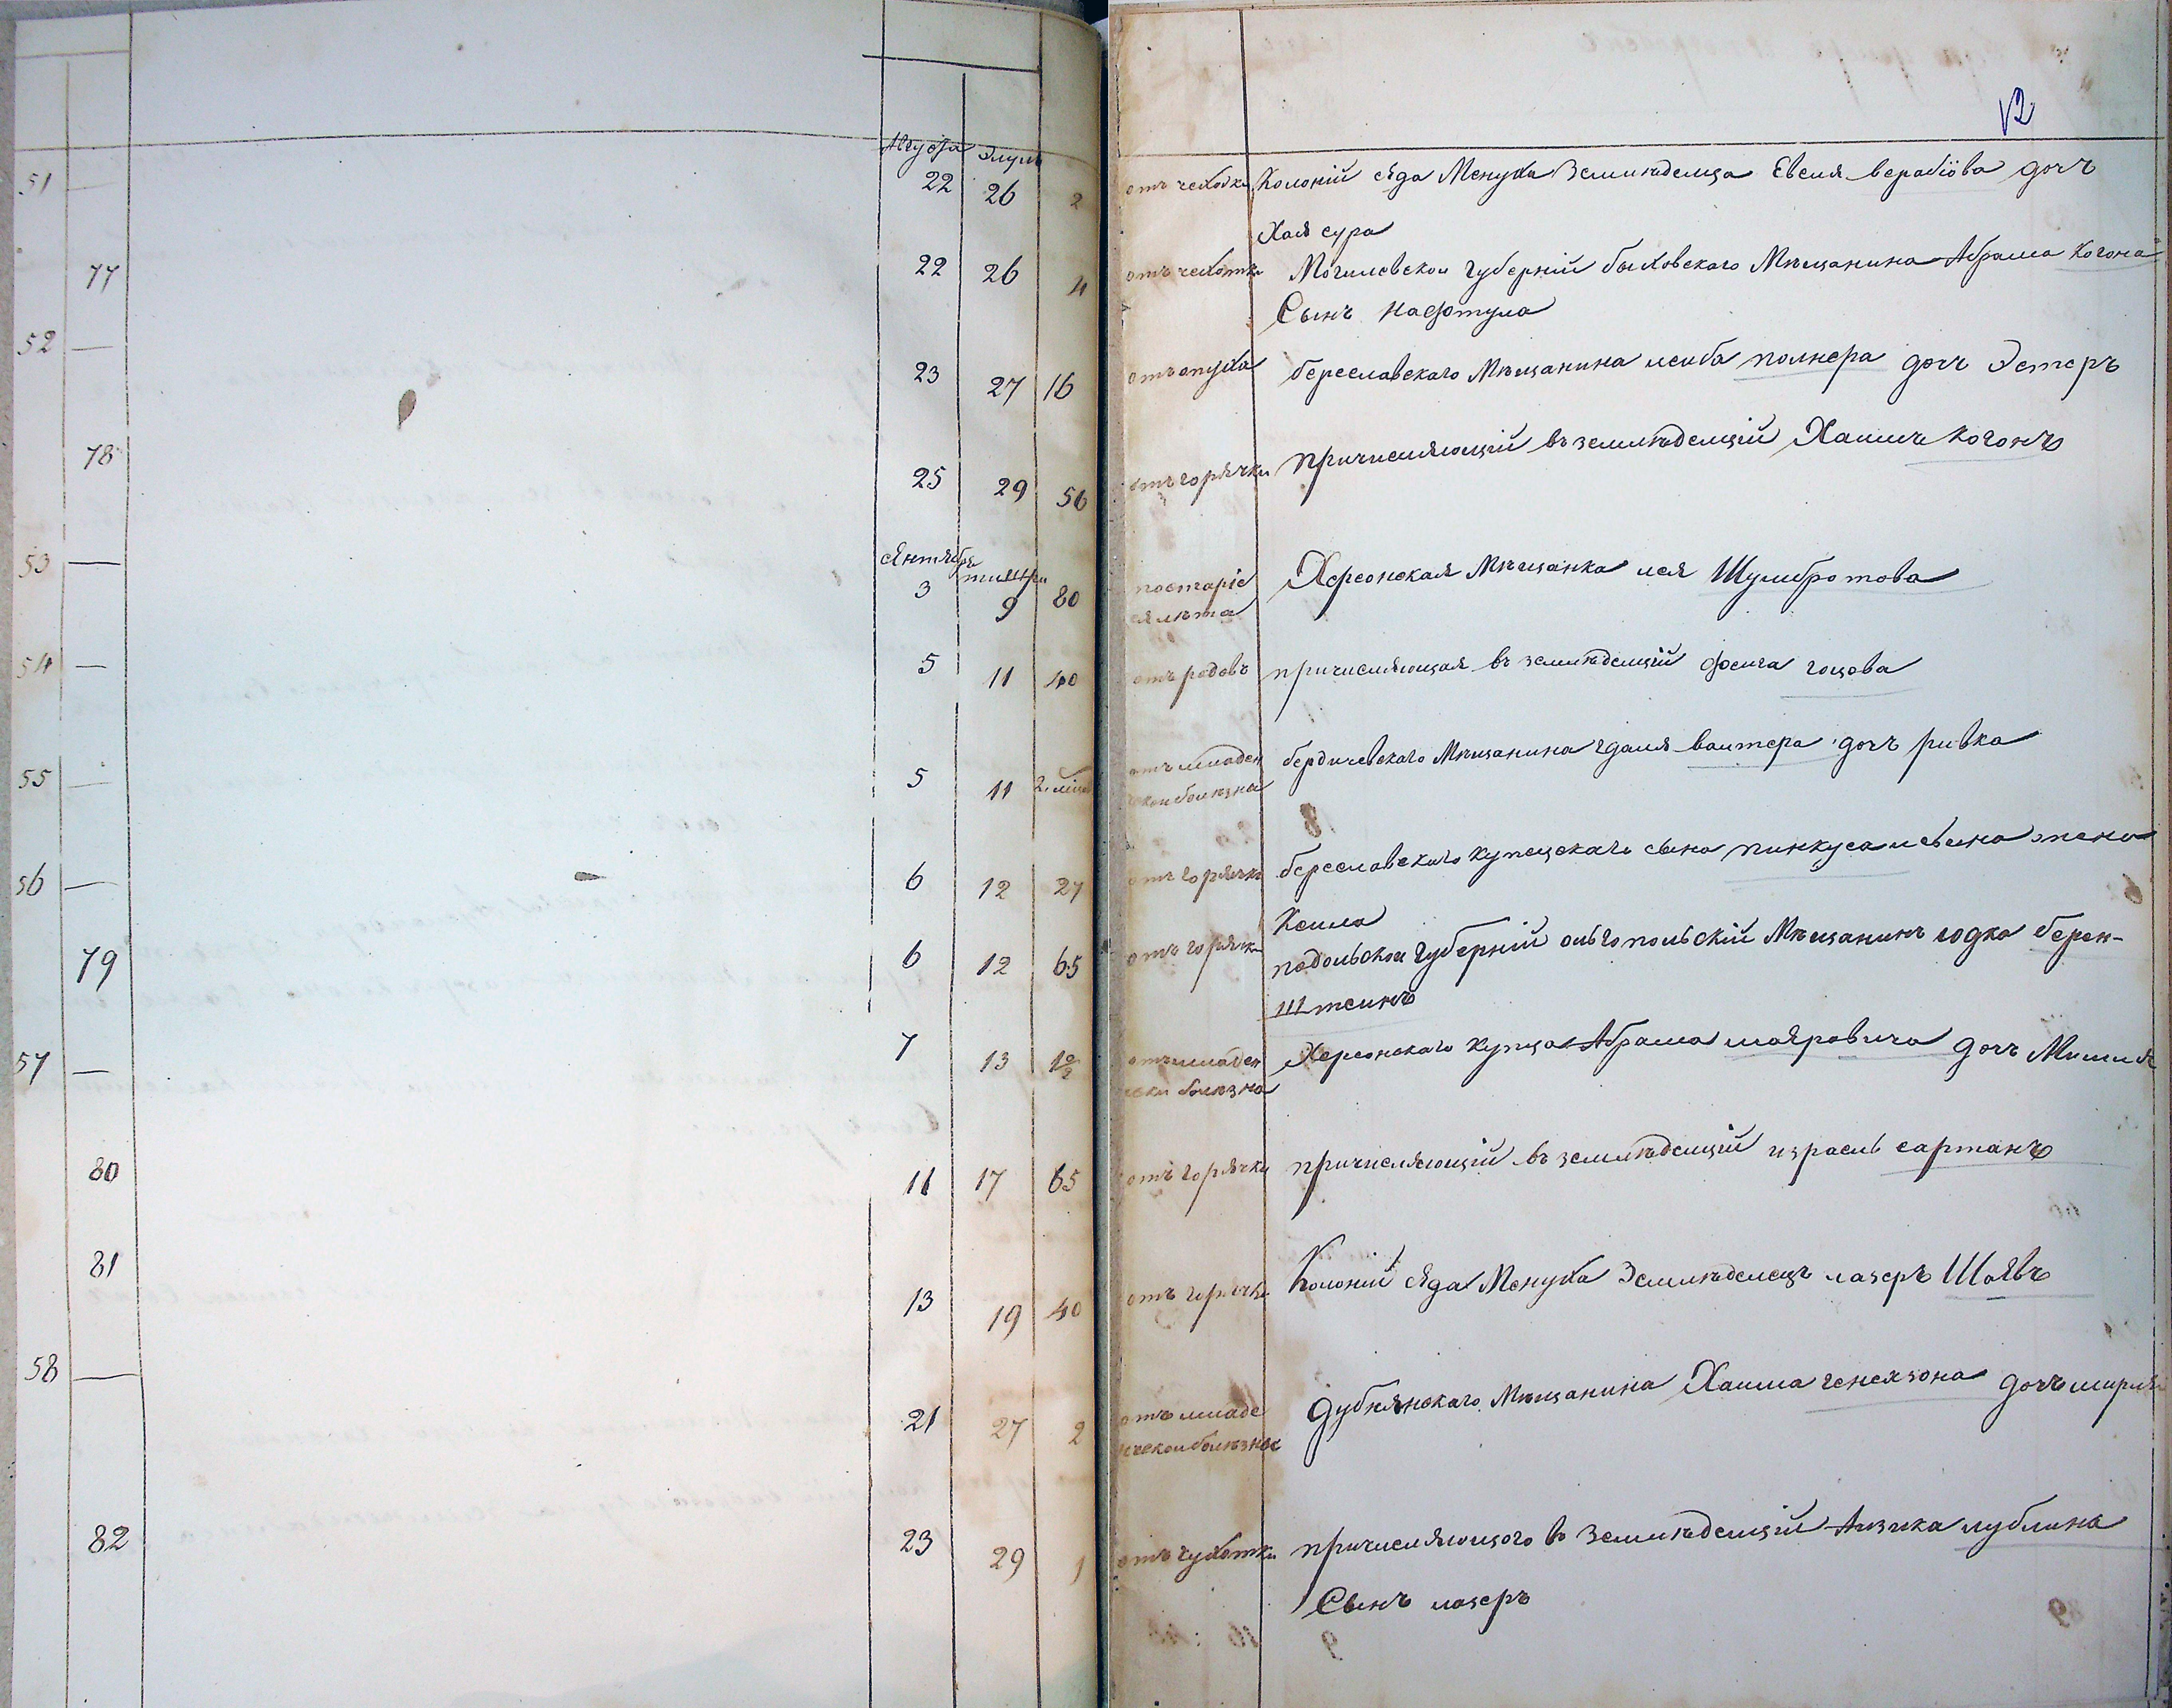 12
Августа Элулъ
51 — 22 26 2 отъ чехотки Колоній сѣда Менуха Земляѣдельца Евсея верабіова дочъ
Хая сура
77 22 26 4 отъ чехотки Могилевской губерній быховскаго Мѣщанина Абрама Когона
Сынъ Нафтула
52 — 23 27 16 отъ опуха береславскаго Мѣщанина лейба полнера дочъ Эстеръ
78 25 29 56 отъ горячки причисляющій въ земляѣделцій Хаимъ Когонъ
сѣнтября тишри
53 — 3 9 80 по старіе Херсонская Мѣщанка лея Шулибротова
я лѣта
54 — 5 11 40 отъ родовъ причисляющая въ земляѣделцій фейга гоцова
55 — 5 11 2. отъ младен бердичевскаго Мѣщанина гдаля ваитера дочъ ривка
ческои болѣзна
56 — 6 12 27 отъ горячки береславскаго купецскаго сына пинкуса левина жена
Кейла
79 6 12 65 отъ горячки подольской губерній ольгопольскій Мѣщанинъ годка берен-
штеинъ
57 — 7 13 1½ отъ младен Херсонскаго купца Абрама маяровича дочъ
чески болѣзна
80 11 17 65 отъ горячки причисляющій въ земляѣделцій израель сартанъ
81 13 19 40 отъ горячки Колоній сѣда Менуха Земляѣделецъ лазеръ Шаявъ
58 — 21 27 2 отъ младе Дубнянскаго Мѣщанина Хаима генехзона дочъ
нческои болѣзнес
82 23 29 1 отъ чухотки причисляющого въ Земляѣделцій Аизика лублина
Сынъ лазеръ